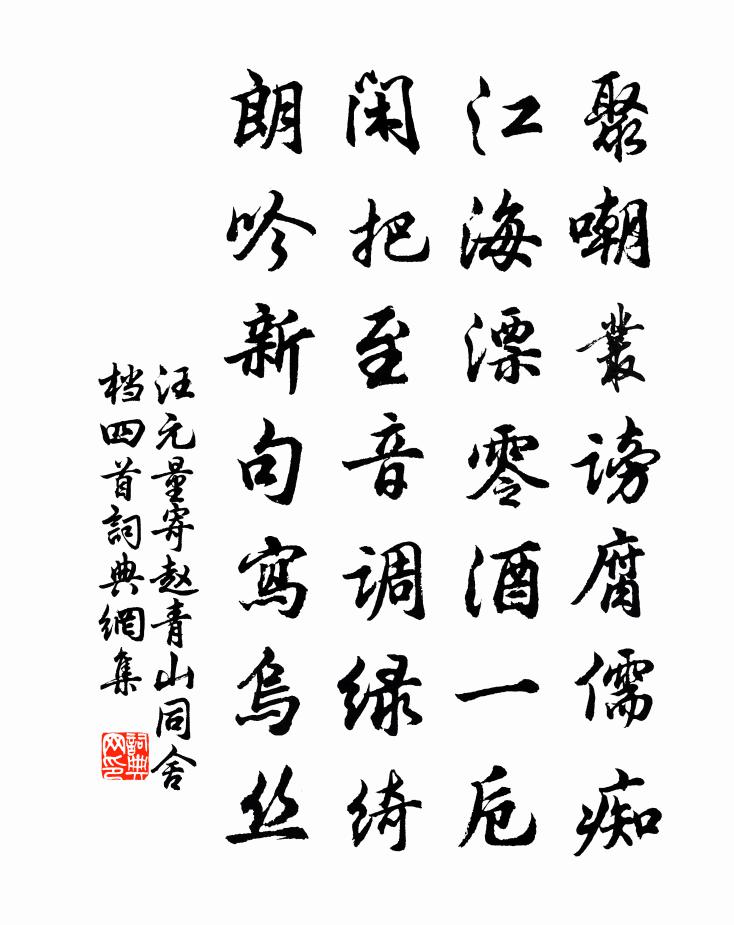 聚嘲叢謗腐儒痴
江海漂零酒一卮
闲把至音調绿绮
朗吟新句寫烏丝
汪元量寄赵青山同舍
档四首詞典網集
詞典网印